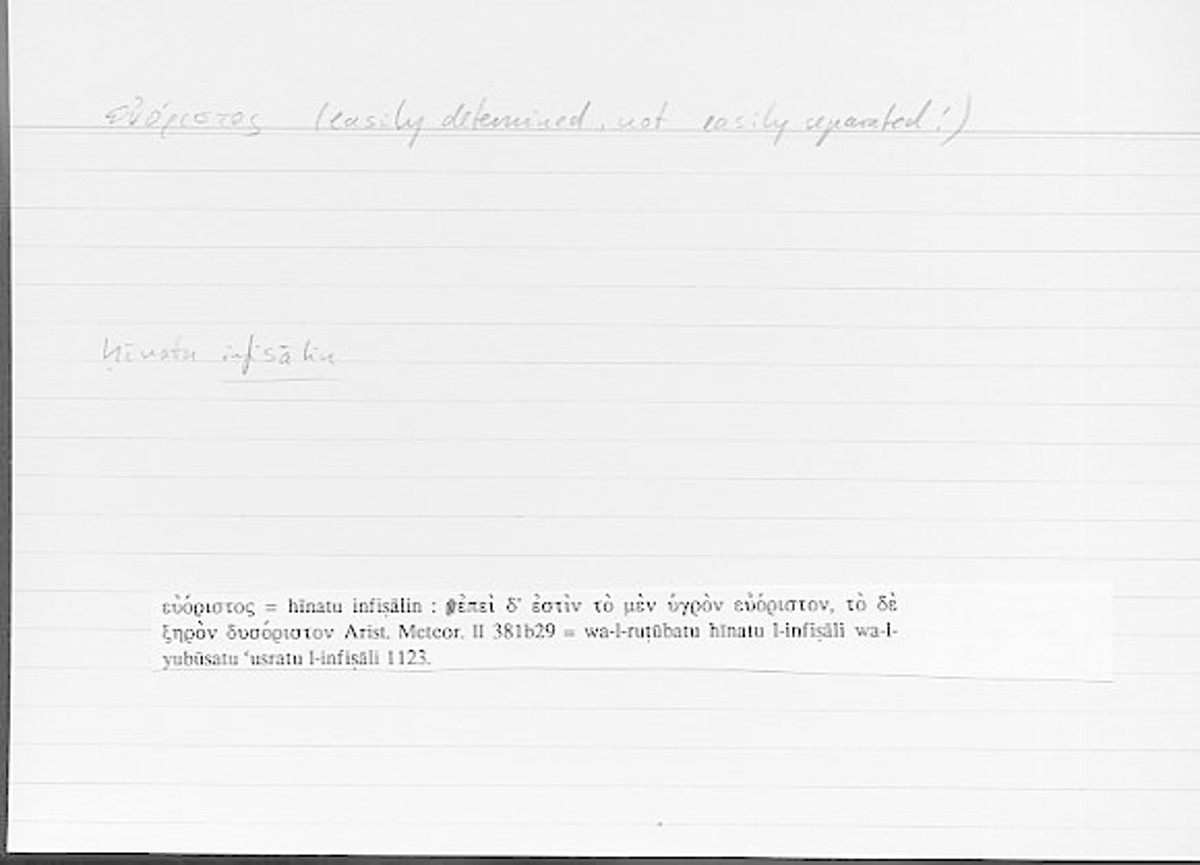 εὐόριστος (easily determined, not easily separated!)
hīnatu infiṣālin
εὐόριστος = hīnatu infiṣālin : ἐπεὶ δ' ἐστὶν τὸ μὲν ὑγρὸν εὐόριστον, τὸ δὲ
ξηρὸν δυσόριστον Arist. Meteor. II 381b29 = wa-l-ruṭūbatu hīnatu l-infiṣāli wa-l-
yubūsatu ʿusratu l-infiṣāli 1123.